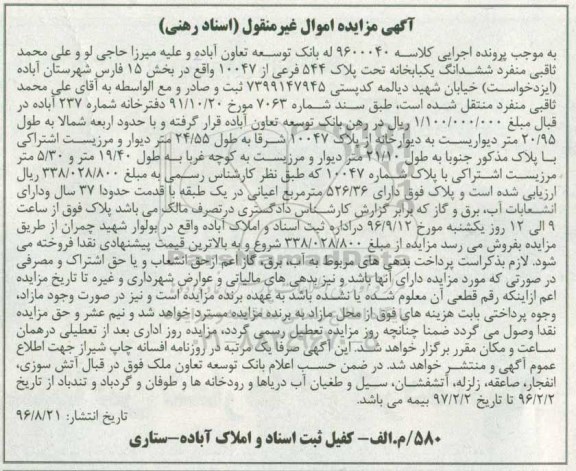 آگهی مزایده اموال غیرمنقول (اسناد رهنی)
به موجب پرونده اجرایی کلاسه ۹۶۰۰۰۴۰ له بانک توسعه تعاون آباده و علیه میرزا حاجی لو و علی محمد
ثاقبی منفرد ششدانگ یکبابخانه تحت پلاک ۵۴۴ فرعی از ۱۰۰۴۷ واقع در بخش ۱۵ فارس شهرستان آباده
(ایزدخواست) خیابان شهید دیالمه کدپستی ۷۳۹۹۱۴۷۹۴۵ ثبت و صادر و مع الواسطه به آقای علی محمد
ثاقبی منفرد منتقل شده است، طبق سند شماره ۷۰۶۳ مورخ ۹۱/۱۰/۲۰ دفترخانه شماره ۲۳۷ آباده در
قبال مبلغ ۱/۱۰۰/۰۰۰/۰۰۰ ریال در رهن بانک توسعه تعاون آباده قرار گرفته و با حدود اربعه شمالا به طول
۲۰/۹۵ متر دیواریست به دیوارخانه پلاک ۱۰۰۴۷ شرقا به طول ۲۴/۵۵ متر دیوار و مرزیست اشتراکی
با پلاک مذکور جنوبا به طول ۲۱/۱۰ متر دیوار و مرزیست به کوچه غربا به طول ۱۹/۴۰ متر و ۵/۳۰ متر
مرزیست اشتراکی با پلاک شماره ۱۰۰۴۷ که طبق نظر کارشناس رسمی به مبلغ ۳۳۸/۰۲۸/۸۰۰ ریال
ارزیابی شده است و پلاک فوق دارای ۵۲۶/۳۶ مترمربع اعیانی در یک طبقه با قدمت حدودا ۳۷ سال ودارای
انشعابات آب، برق و گاز که برابر گزارش کارشناس دادگستری درتصرف مالک می باشد پلاک فوق از ساعت
۹ الی ۱۲ روز یکشنبه مورخ ۹۶/۹/۱۲ دراداره ثبت اسناد و املاک آباده واقع در بولوار شهید چمران از طریق
مزایده بفروش می رسد مزایده از مبلغ ۳۳۸/۰۲۸/۸۰۰ شروع و به بالاترین قیمت پیشنهادی نقدا فروخته می
شود. لازم بذکراست پرداخت بدهی های مربوط به آب، برق، گاز اعم ازحق انشعاب و یا حق اشتراک و مصرفی
در صورتی که مورد مزایده دارای آنها باشد و نیز بدهی های مالیاتی و عوارض شهرداری و غیره تا تاریخ مزایده
اعم ازاینکه رقم قطعی آن معلوم شده یا نشده باشد به عهده برنده مزایده است و نیز در صورت وجود مازاد،
وجوه پرداختی بابت هزینه های فوق از محل مازاد به برنده مزایده مسترد خواهد شد و نیم عشر و حق مزایده
نقدا وصول می گردد ضمنا چنانچه روز مزایده تعطیل رسمی گردد، مزایده روز اداری بعد از تعطیلی درهمان
ساعت و مکان مقرر برگزار خواهد شد. این آگهی صرفا یک مرتبه در روزنامه افسانه چاپ شیراز جهت اطلاع
عموم آگهی و منتشر خواهد شد. در ضمن حسب اعلام بانک توسعه تعاون ملک فوق در قبال آتش سوزی،
انفجار، صاعقه، زلزله، آتشفشان، سیل و طغیان آب دریاها و رودخانه ها و طوفان و گردباد و تندباد از تاریخ
۹۶/۲/۲ تا تاریخ ۹۷/۲/۲ بیمه می باشد.
تاریخ انتشار: ۹۶/۸/۲۱
۵۸۰/م.الف- کفیل ثبت اسناد و املاک آباده-ستاری